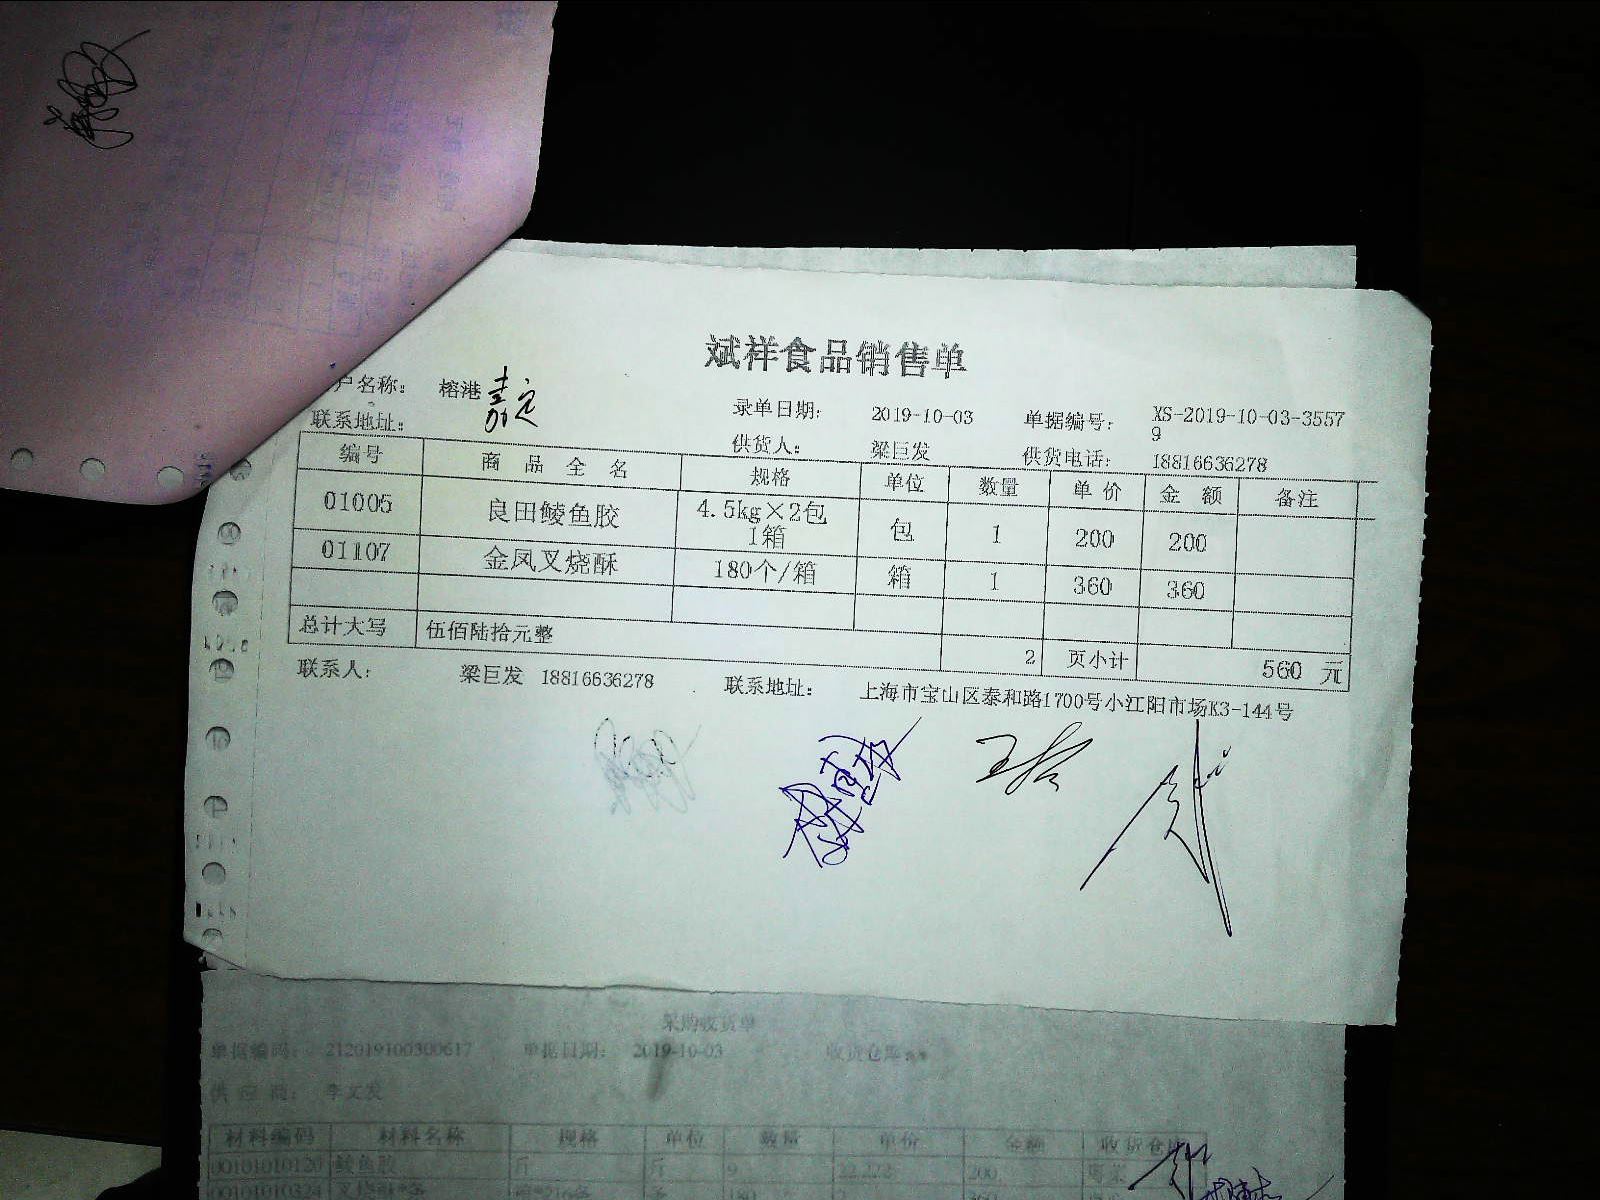 斌祥食品销售单
户名称： 榕港 嘉定
录单日期： 2019-10-03 单据编号： XS-2019-10-03-3557
9
联系地址： 供货人： 梁巨发 供货电话： 18816636278
编号 商 品 全 名 规格 单位 数量 单 价 金 额 备注
01005 良田鲮鱼胶 4.5kg×2包 包 1 200 200
1箱
01107 金凤叉烧酥 180个/箱 箱 1 360 360
总计大写 伍佰陆拾元整 2 页小计 560 元
联系人： 梁巨发 18816636278 联系地址： 上海市宝山区泰和路1700号小江阳市场K3-144号
采购收货单
单据编码： 212019100300617 单据日期： 2019-10-03 收货仓库：
供 应 商： 李文发
材料编码 材料名称 规格 单位 数量 单价 金额 收货仓库
00101010120 鲮鱼胶 斤 斤 9 22.222 200
00101010324